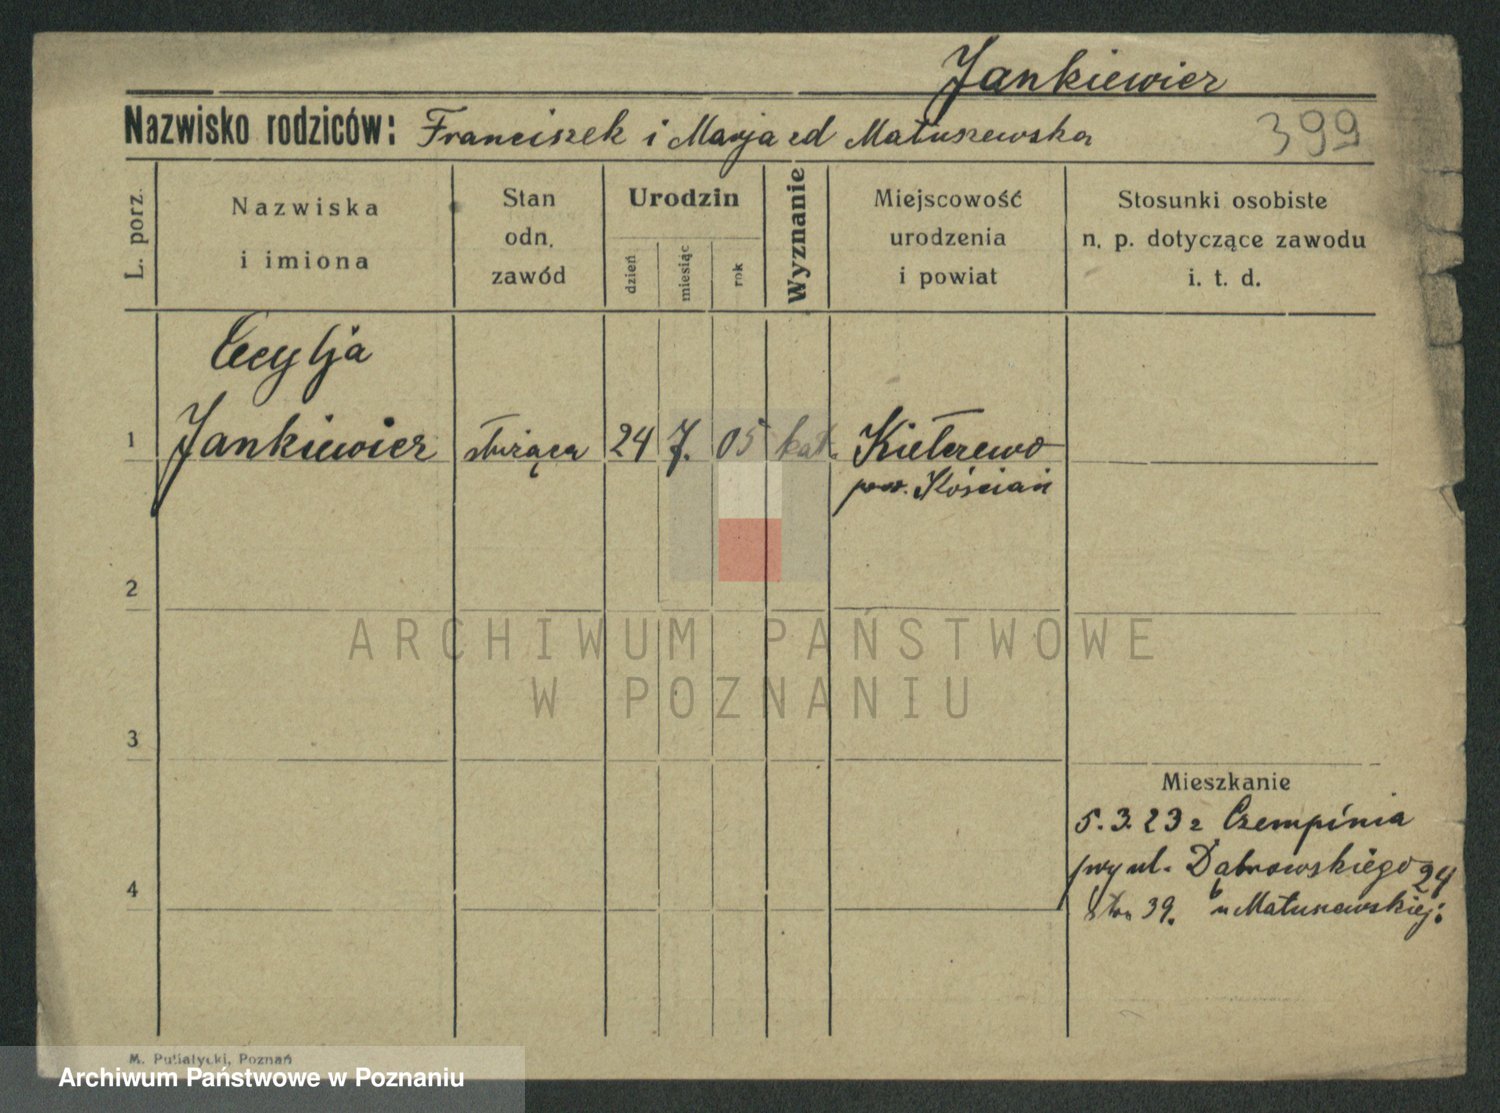 Jankiewicz
Nazwisko rodziców: Franciszek i Marja zd Matuszewska
399
L. porz.
Nazwiska
i imiona
Stan
odn.
zawód
Urodzin
dzień
miesiąc
rok
Wyznanie
Miejscowość
urodzenia
i powiat
Stosunki osobiste
n. p. dotyczące zawodu
i. t. d.
Cecylja
1 Jankiewicz służąca 24 7. 05 kat. Kiełczewo
pow. Kościan
2
3
4
Mieszkanie
5.3.23 z Czempinia
przy ul. Dąbrowskiego 24
39. u Matuszewskiej
M. Putiatycki, Poznań
ARCHIWUM PAŃSTWOWE
W POZNANIU
Archiwum Państwowe w Poznaniu